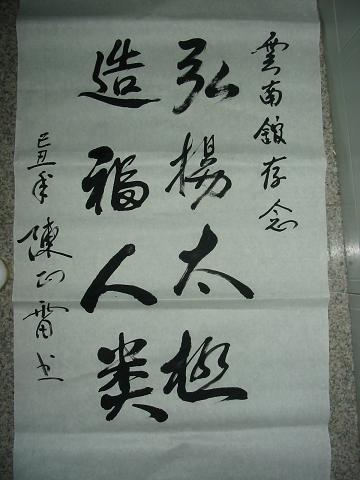 雲南館存念
弘揚太极
造福人类
己丑年陳正雷书